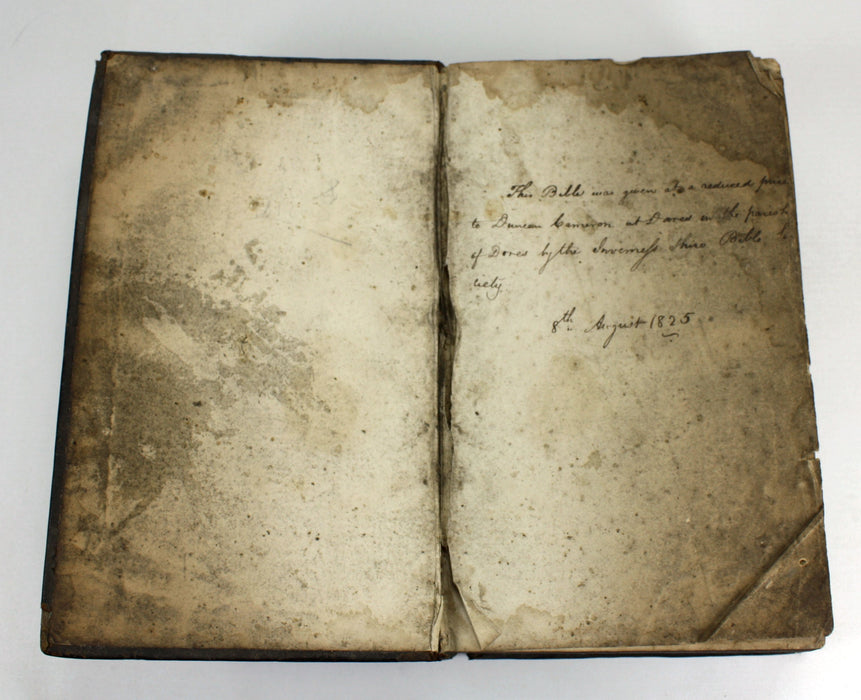 This Bible was given at a reduced price
to Duncan Cameron at Dores in the parish
of Dores by the Inverness Shire Bible So
ciety
8th August 1825